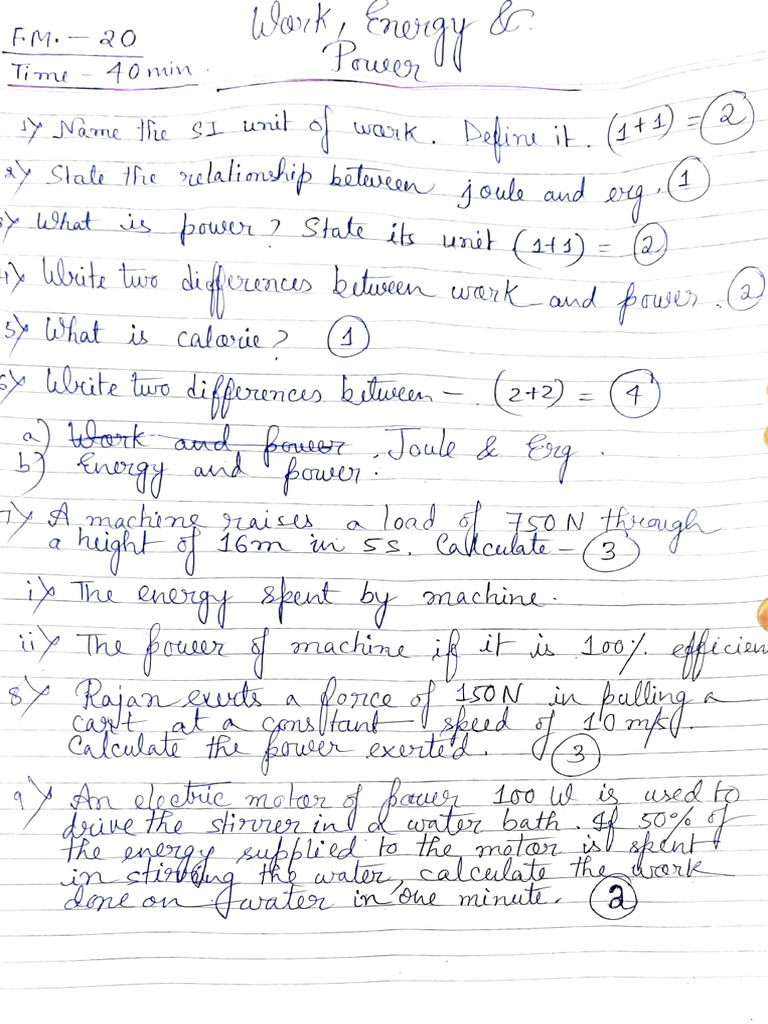 F.M. - 20
Time - 40 min.
Work, Energy &
Power
1) Name the SI unit of work. Define it. (1+1) = 2
2) State the relationship between joule and erg. 1
3) What is power? State its unit (1+1) = 2
4) Write two differences between work and power. 2
5) What is calorie? 1
6) Write two differences between - (2+2) = 4
a) Work and power. Joule & Erg.
b) Energy and power.
7) A machine raises a load of 750N through
a height of 16m in 5s. Calculate - 3
i) The energy spent by machine.
ii) The power of machine if it is 100% efficien
8) Rajan exerts a force of 150N in pulling a
cart at a constant speed of 10 m/s.
Calculate the power exerted. 3
9) An electric motor of power 100 W is used to
drive the stirrer in a water bath. If 50% of
the energy supplied to the motor is spent
in stirring the water, calculate the work
done on water in one minute. 2